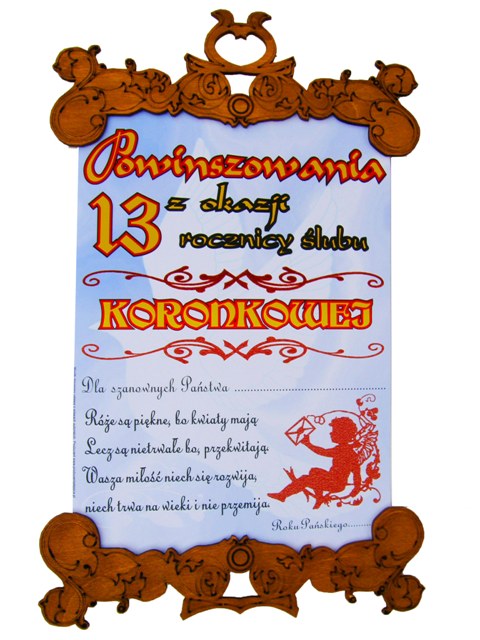 Powinszowania
13 z okazji
rocznicy ślubu
KORONKOWEJ
Dla szanownych Państwa ........................................
Róże są piękne, bo kwiaty mają
Lecz są nietrwałe bo, przekwitają.
Wasza miłość niech się rozwija,
niech trwa na wieki i nie przemija.
Roku Pańskiego.........